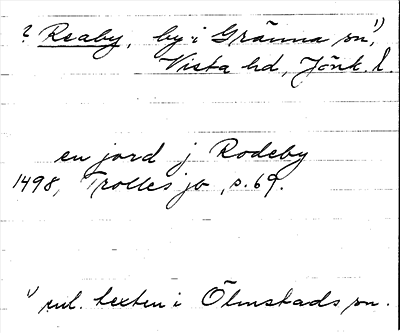 ? Reaby, by i Gränna sn¹⁾,
Vista hd, Jönk. l.
en jord j Rodeby
1498, Trolles jb, s. 69.
¹⁾ enl. texten i Ölmstads sn.